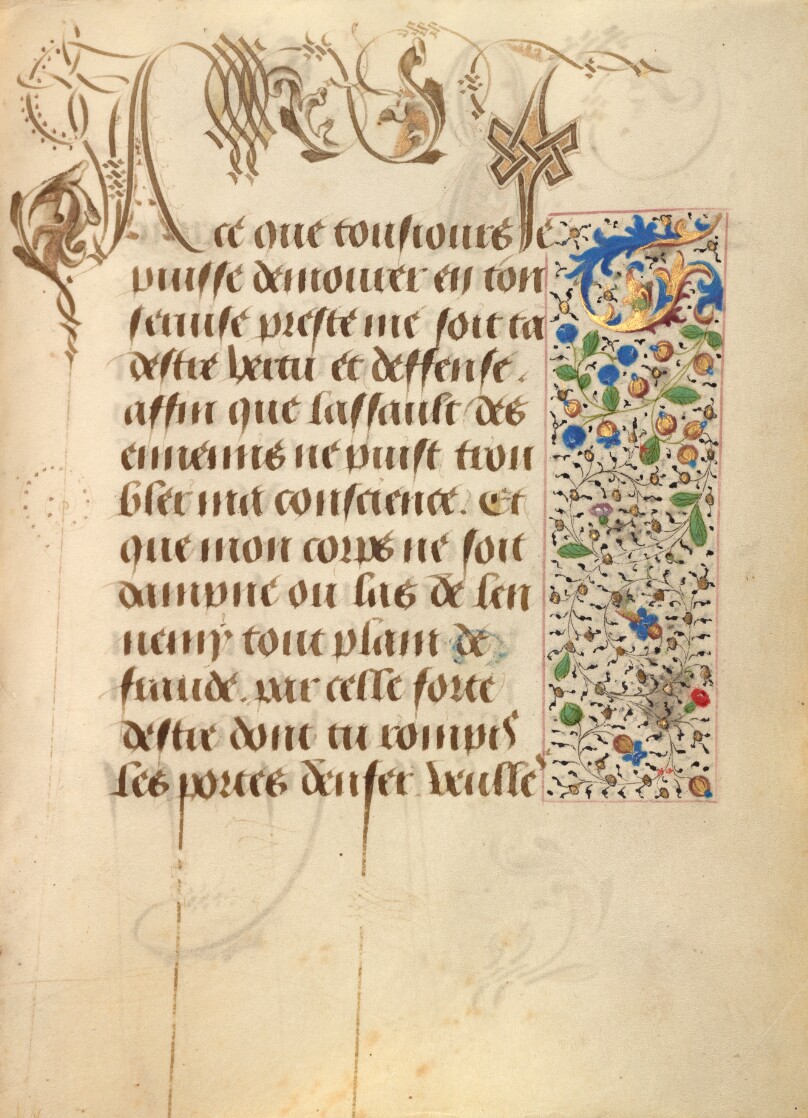 A ce que tousiours Je
puisse demourer en ton
seruise preste me soit ta
destre vertu et deffense.
affin que lassault des
ennemis ne puist trou
bler ma conscience. Et
que mon corps ne soit
dampne ou las de len
nemy tout plain de
fraude. par celle forte
destre dont tu rompis
les portes denfer. veulle